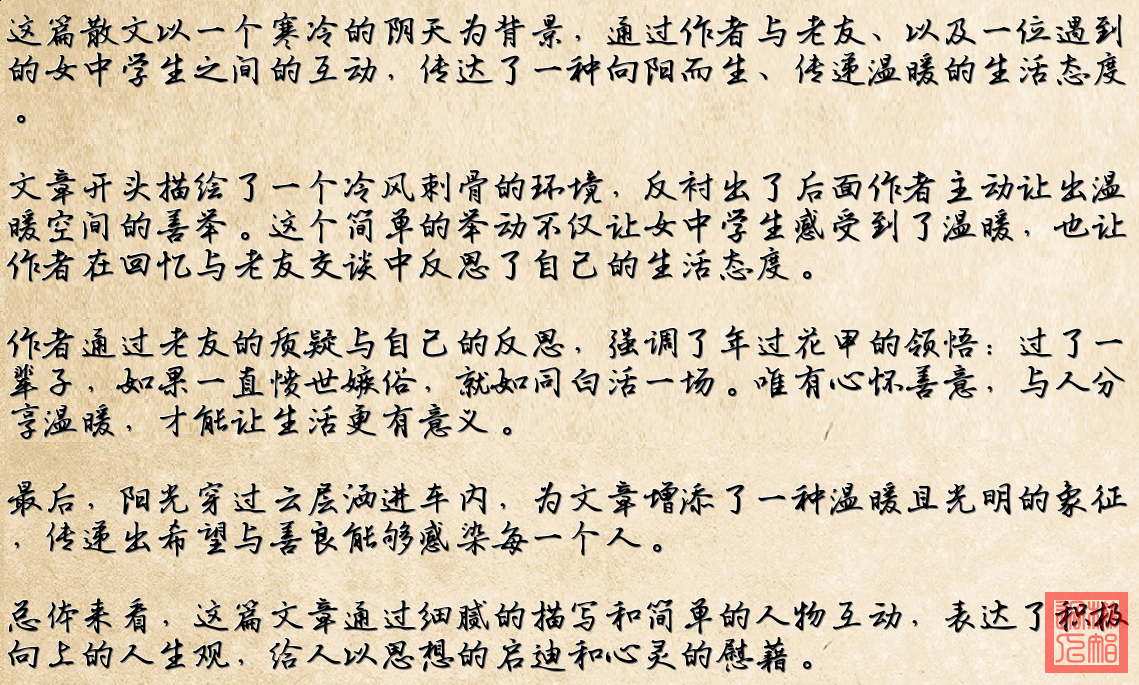 这篇散文以一个寒冷的阴天为背景，通过作者与老友、以及一位遇到
的女中学生之间的互动，传达了一种向阳而生、传递温暖的生活态度
。
文章开头描绘了一个冷风刺骨的环境，反衬出了后面作者主动让出温
暖空间的善举。这个简单的举动不仅让女中学生感受到了温暖，也让
作者在回忆与老友交谈中反思了自己的生活态度。
作者通过老友的质疑与自己的反思，强调了年过花甲的领悟：过了一
辈子，如果一直愤世嫉俗，就如同白活一场。唯有心怀善意，与人分
享温暖，才能让生活更有意义。
最后，阳光穿过云层洒进车内，为文章增添了一种温暖且光明的象征
，传递出希望与善良能够感染每一个人。
总体来看，这篇文章通过细腻的描写和简单的人物互动，表达了积极
向上的人生观，给人以思想的启迪和心灵的慰藉。